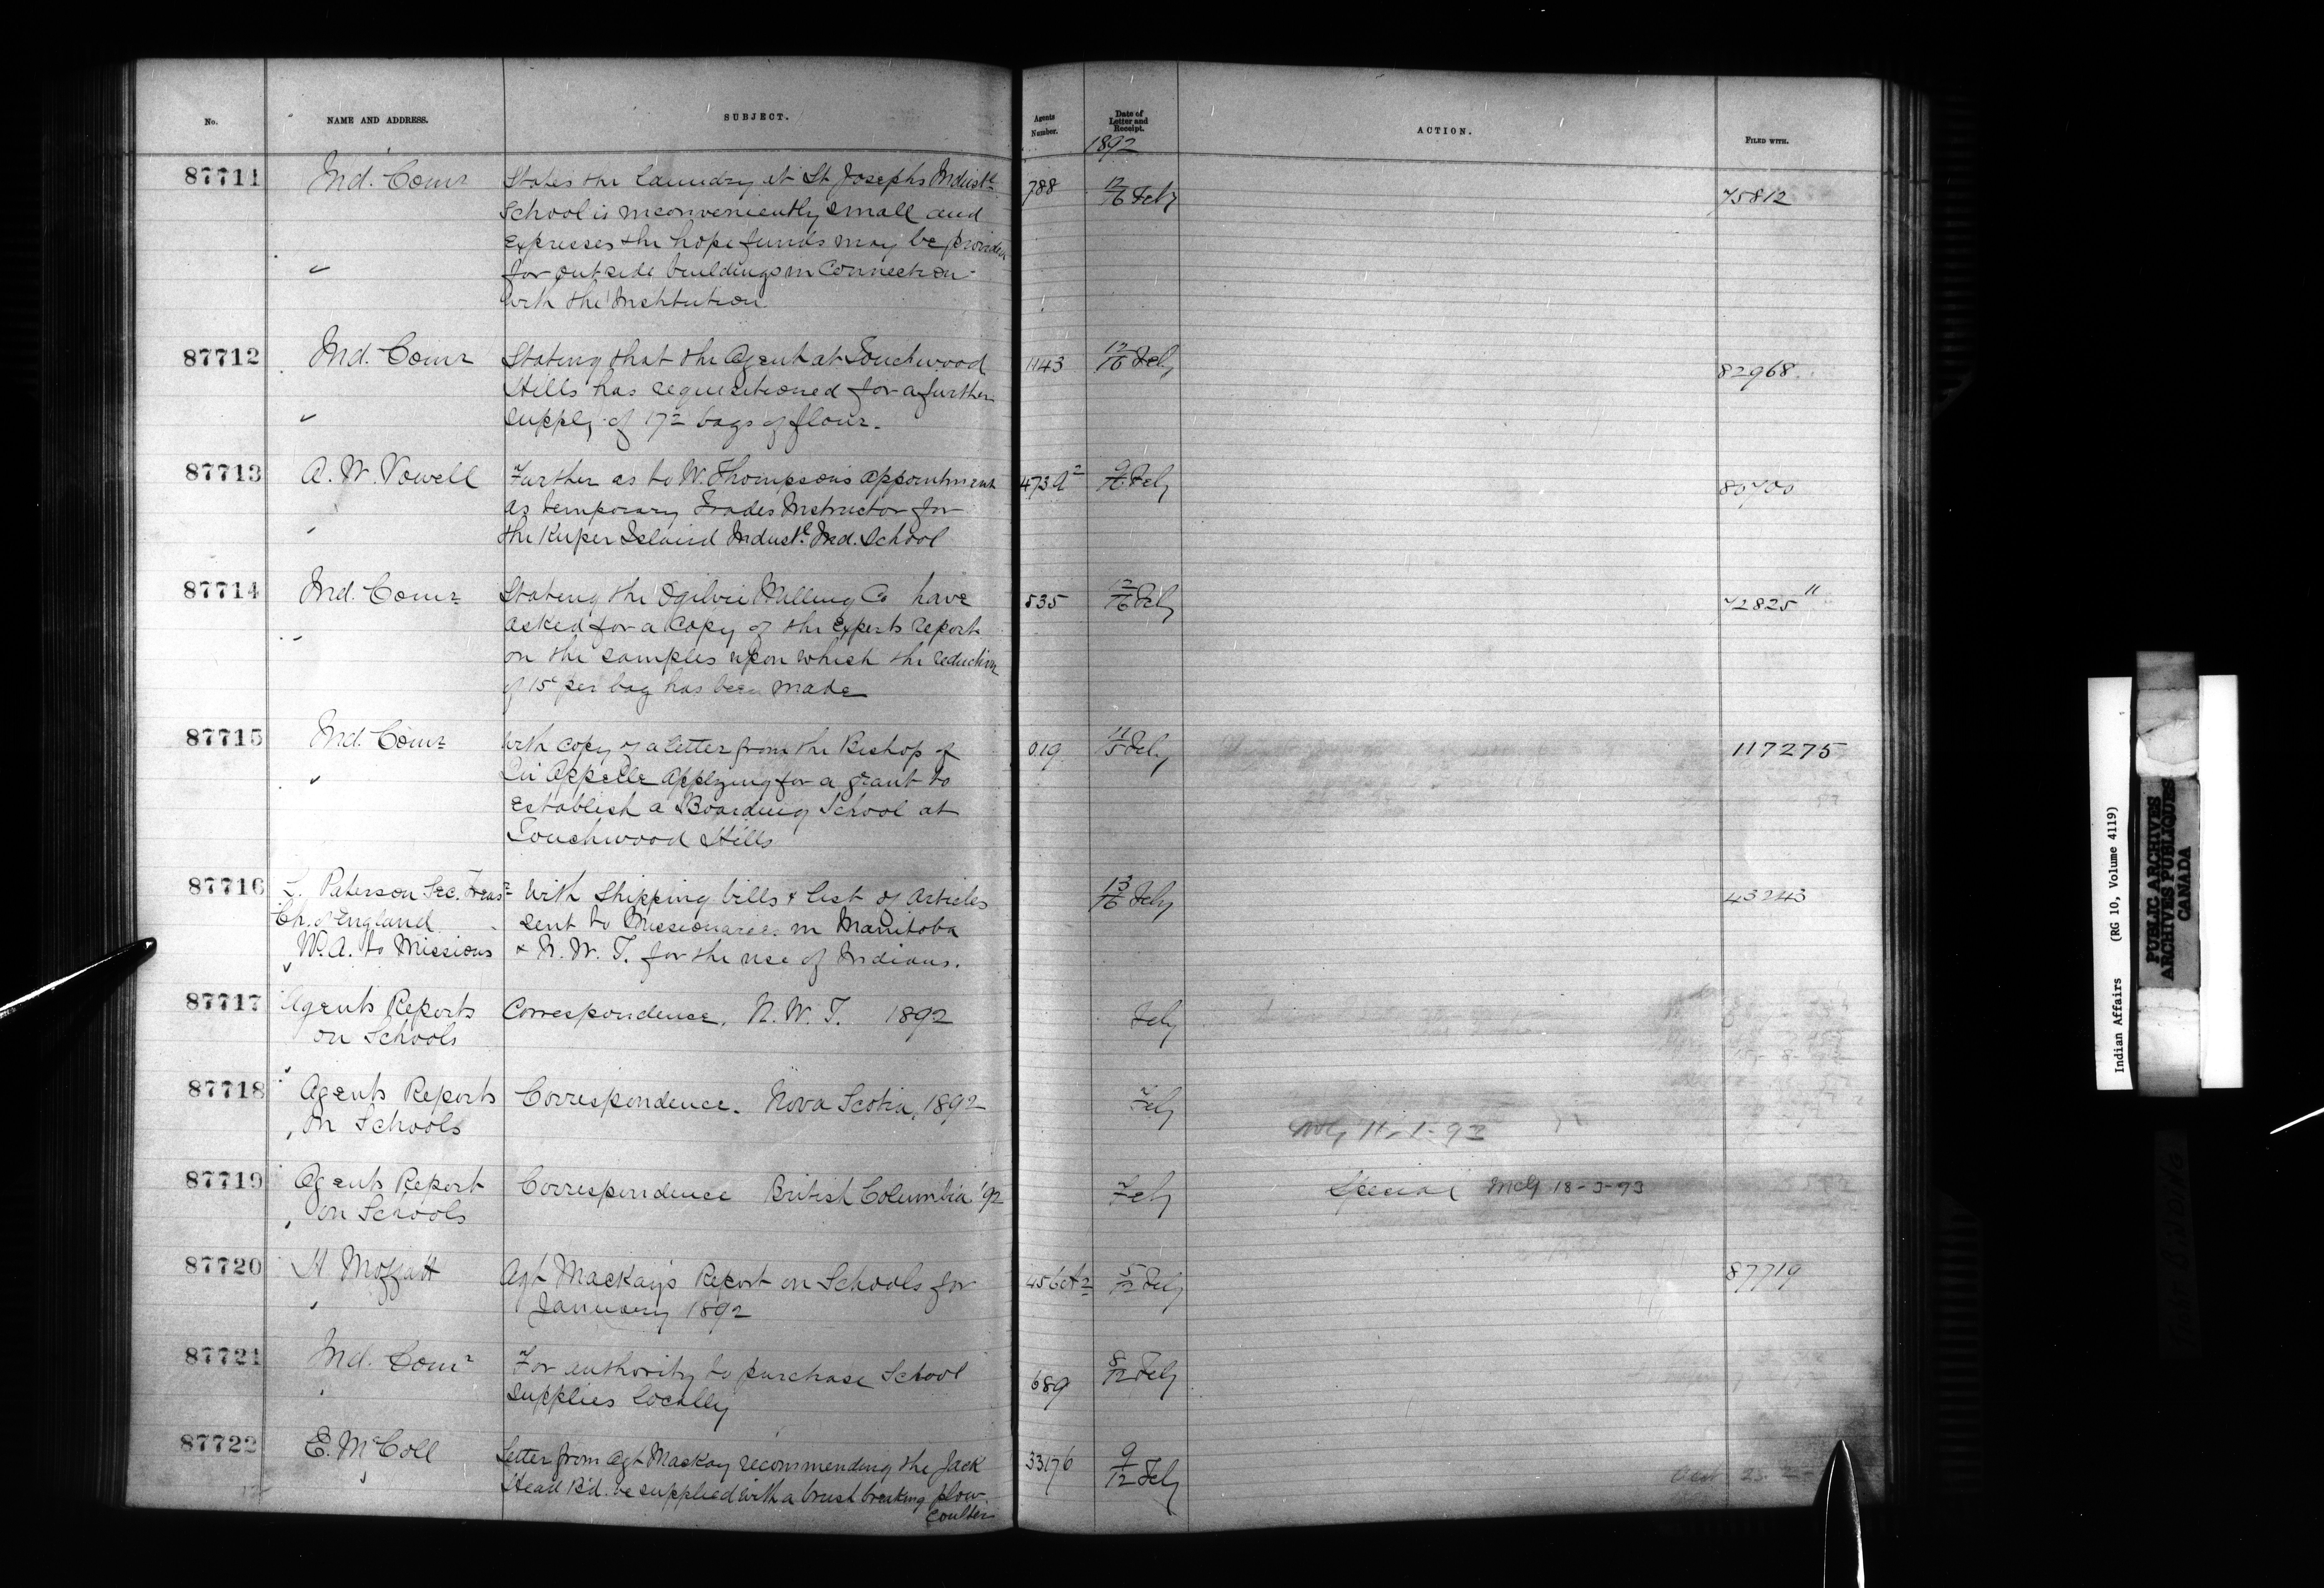 No.
NAME AND ADDRESS.
SUBJECT.
Agents Number.
Date of Letter and Receipt.
1892
ACTION.
FILED WITH.
87711 Ind. Comr
States the laundry at St Josephs Industl
School is inconveniently small and
expresses the hope funds may be provided
for outside buildings in connection
with the Institution
788 12/16 Feby 75812
87712 Ind. Comr
Stating that the Agent at Touchwood
Hills has requisitioned for a further
supply of 172 bags of flour.
1143 12/16 Feby 82968
87713 A. W. Vowell
Further as to W. Thompson's appointment
as temporary Trades Instructor for
the Kuper Island Industl Ind. School
473 A2 9/16 Feby
87714 Ind. Comr
Stating the Ogilvie Milling Co have
asked for a copy of the Experts report
on the samples upon which the reduction
of 15c per bag has been made
535 12/16 Feby 72825 "
87715 Ind. Comr
With copy of a letter from the Bishop of
Qu Appelle applying for a grant to
establish a Boarding School at
Touchwood Hills
019 11/15 Feby 117275
87716 L. Paterson Sec. Treasr
Ch. of England
W. A. to Missions
With Shipping bills & list of articles
sent to Missionaries in Manitoba
& N. W. T. for the use of Indians.
13/16 Feby 43243
87717 Agents Reports
on Schools
Correspondence. N. W. T. 1892
Feby
87718 Agents Reports
on Schools
Correspondence. Nova Scotia, 1892
Feby
87719 Agents Report
on Schools
Correspondence British Columbia '92
Feby
Special McG 18-3-93
87720 H Moffatt
Agt MacKay's Report on Schools for
January 1892
Feby 87719
87721 Ind. Comr
For authority to purchase School
supplies locally
689 8/12 Feby
87722 E. McColl
Letter from Agt Mackay recommending the Jack
Head Bd. be supplied with a brush breaking plow
Coulter
33176 9/12 Feby
Indian Affairs (RG 10, Volume 4119)
PUBLIC ARCHIVES
ARCHIVES PUBLIQUES
CANADA